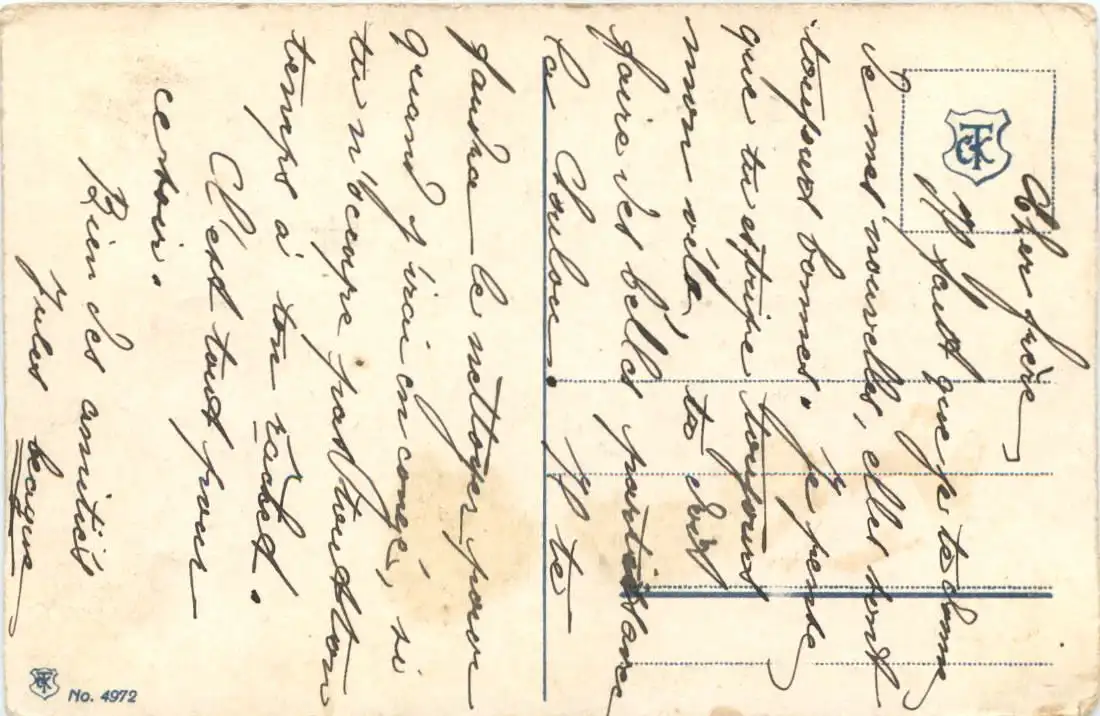 Cher frère
Il faut que je te donne
de mes nouvelles, elles sont
toujours bonnes. Je pense
que tu étripe toujours
mon vélo, tu dois
faire des belles parties avec
la Loulou. Il te
faudra le nettoyer pour
quand j'irai en congé, si
tu n'occupe pas tout ton
temps à ton rachet.
C'est tout pour
ce soir.
Bien des amitiés
Jules
TCK
TCK
No. 4972